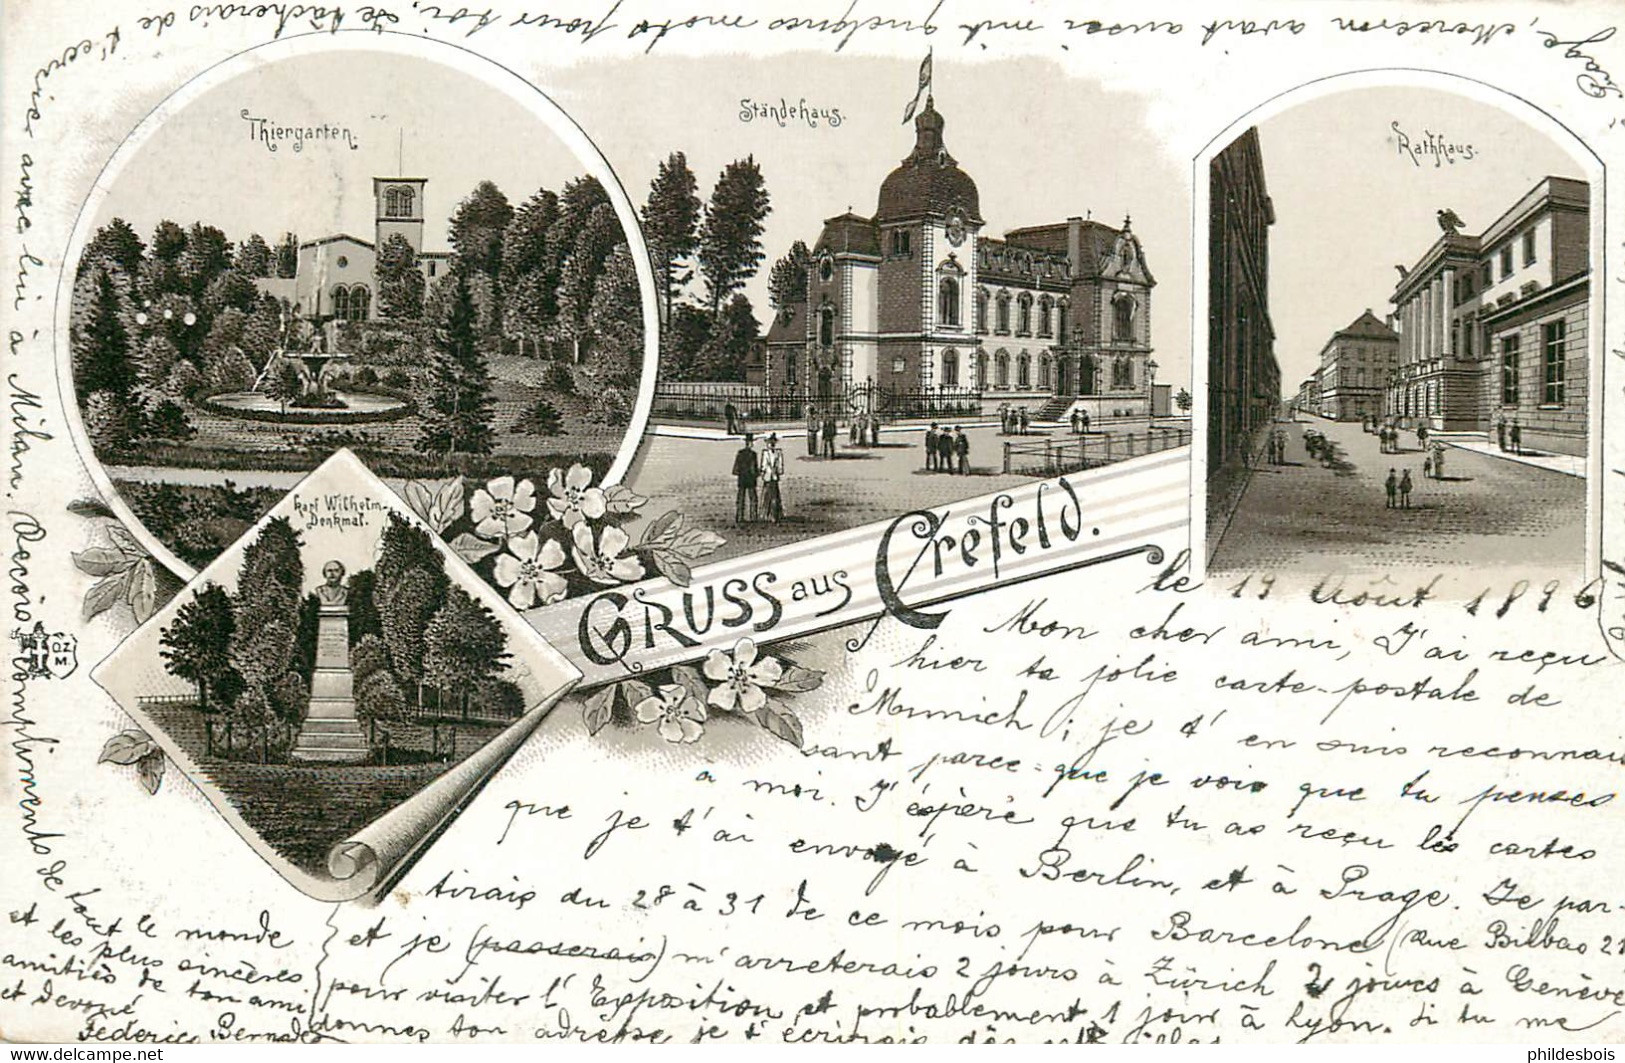 Thiergarten.
Ständehaus.
Rathhaus.
Karl Wilhelm-
Denkmal.
GRUSS aus Crefeld.
O.Z.
M.
le 19 Août 1896
Mon cher ami, J'ai reçu
hier ta jolie carte-postale de
Munich; je t'en suis reconnais
sant parce-que je vois que tu penses
à moi. J'éspère que tu as reçu les cartes
que je t'ai envoyé à Berlin, et à Prage. Je par-
tirais du 28 à 31 de ce mois pour Barcelone (Rue Bilbao 21
et je (passerais) m'arreterais 2 jours à Zürich 2 jours à Genève
pour visiter l'Exposition et probablement 1 jour à Lyon. Si tu me
donnes ton adresse je t'écrirais dès
page, avait aussi mit quelques mots pour toi, Je tâcherais de t'ecrire
avec lui à Milan. Reçois, complimentos de
tout le monde
et les plus sincères
amitiés de ton ami
et devoué
Federico
phildesbois